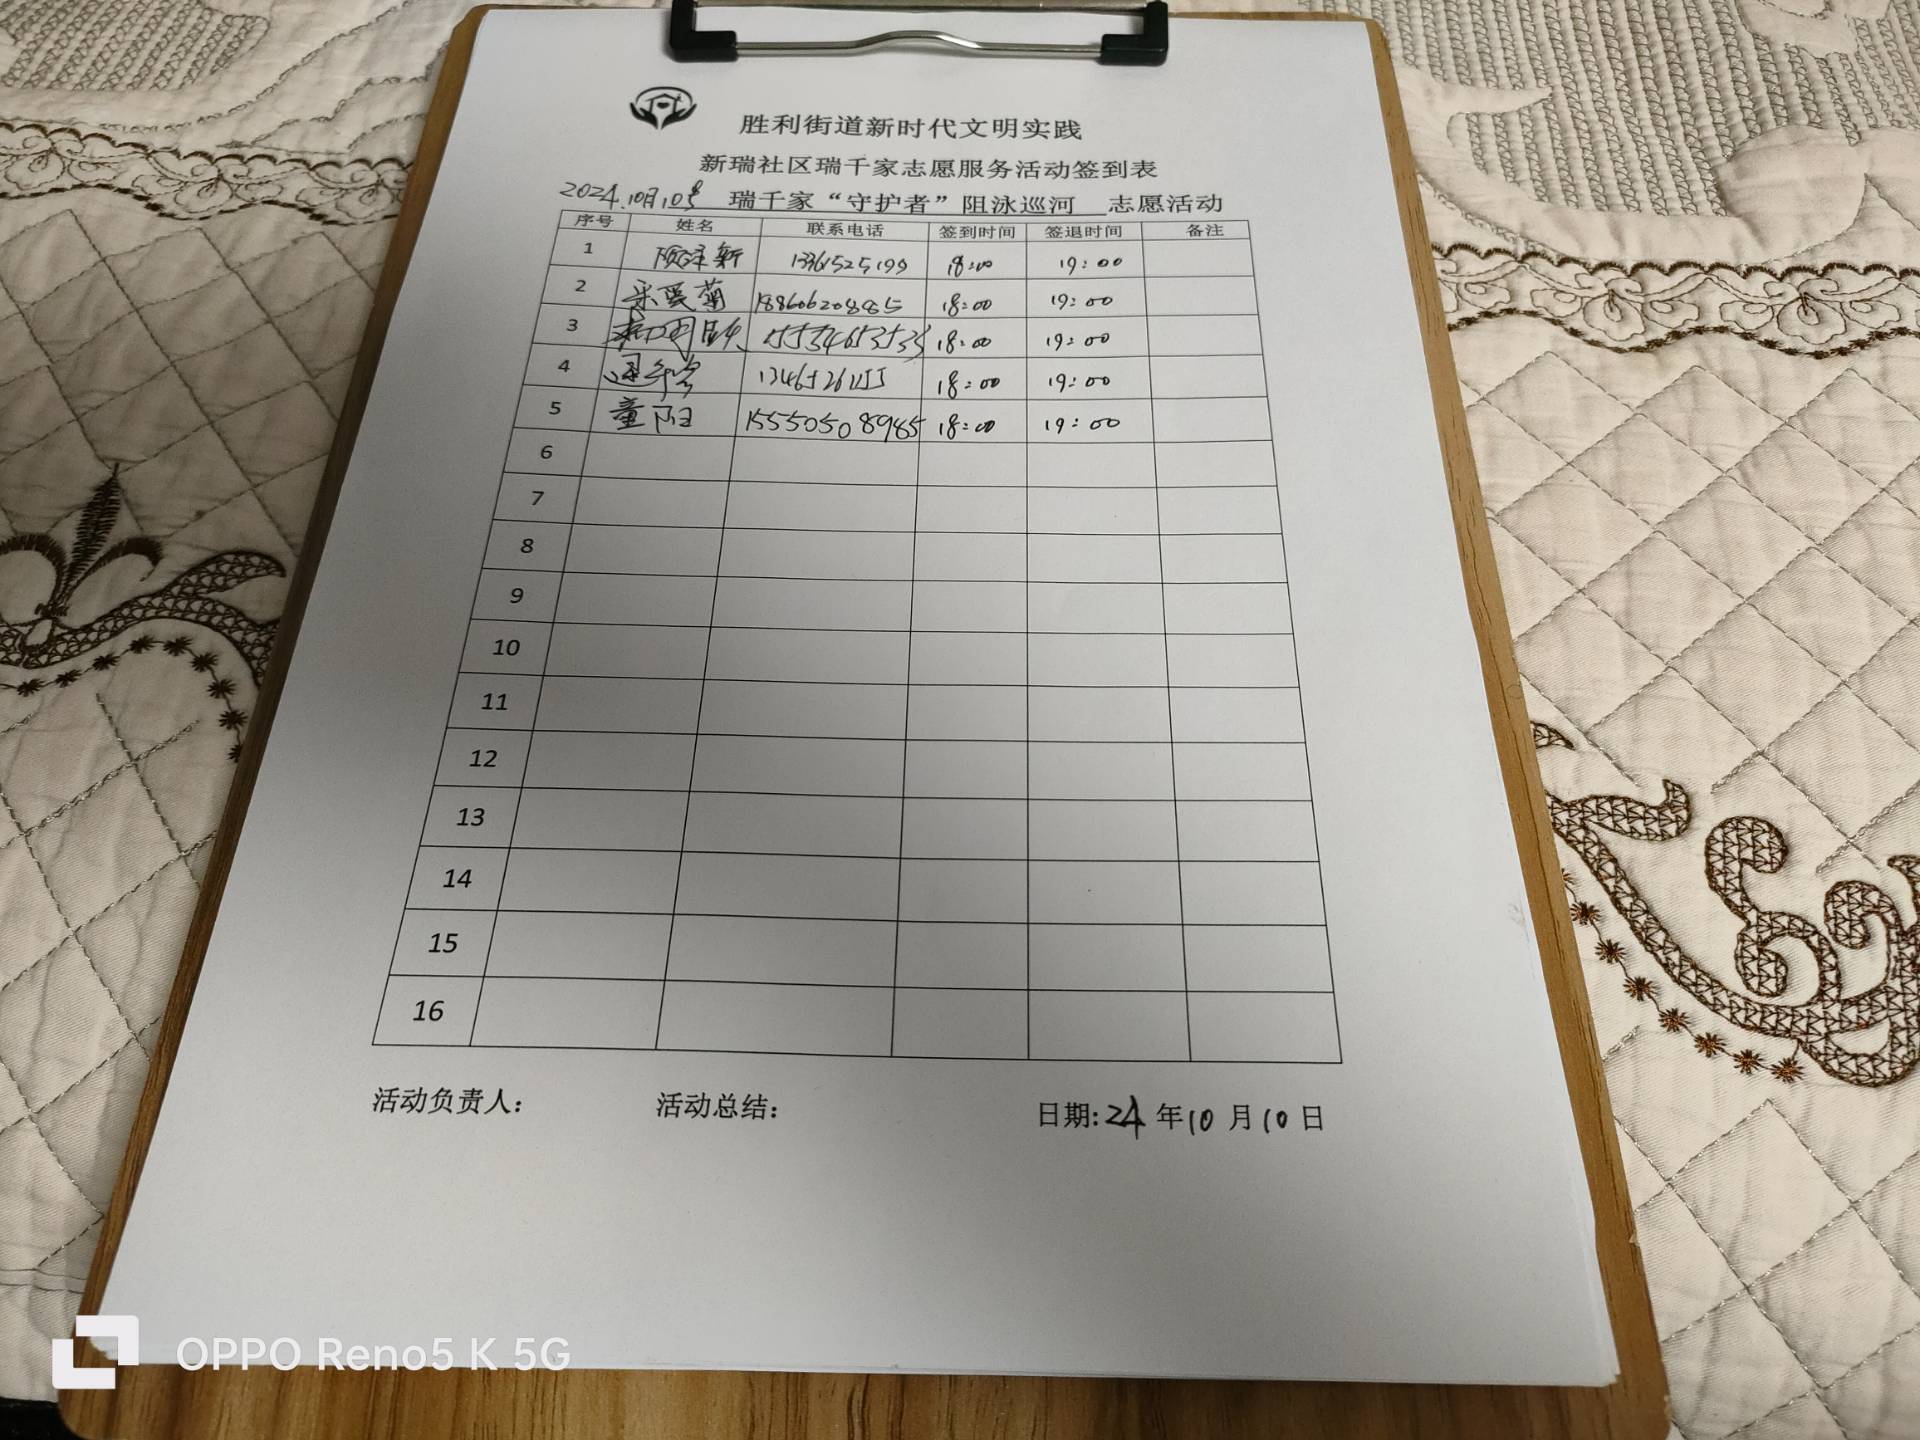 胜利街道新时代文明实践
新瑞社区瑞千家志愿服务活动签到表
2024.10月10号 瑞千家“守护者”阻泳巡河 志愿活动
序号 姓名 联系电话 签到时间 签退时间 备注
1 18:00 19:00
2 18860620885 18:00 19:00
3 15534653533 18:00 19:00
4 18:00 19:00
5 童阳 15550508985 18:00 19:00
6
7
8
9
10
11
12
13
14
15
16
活动负责人: 活动总结: 日期:24年10月10日
OPPO Reno5 K 5G